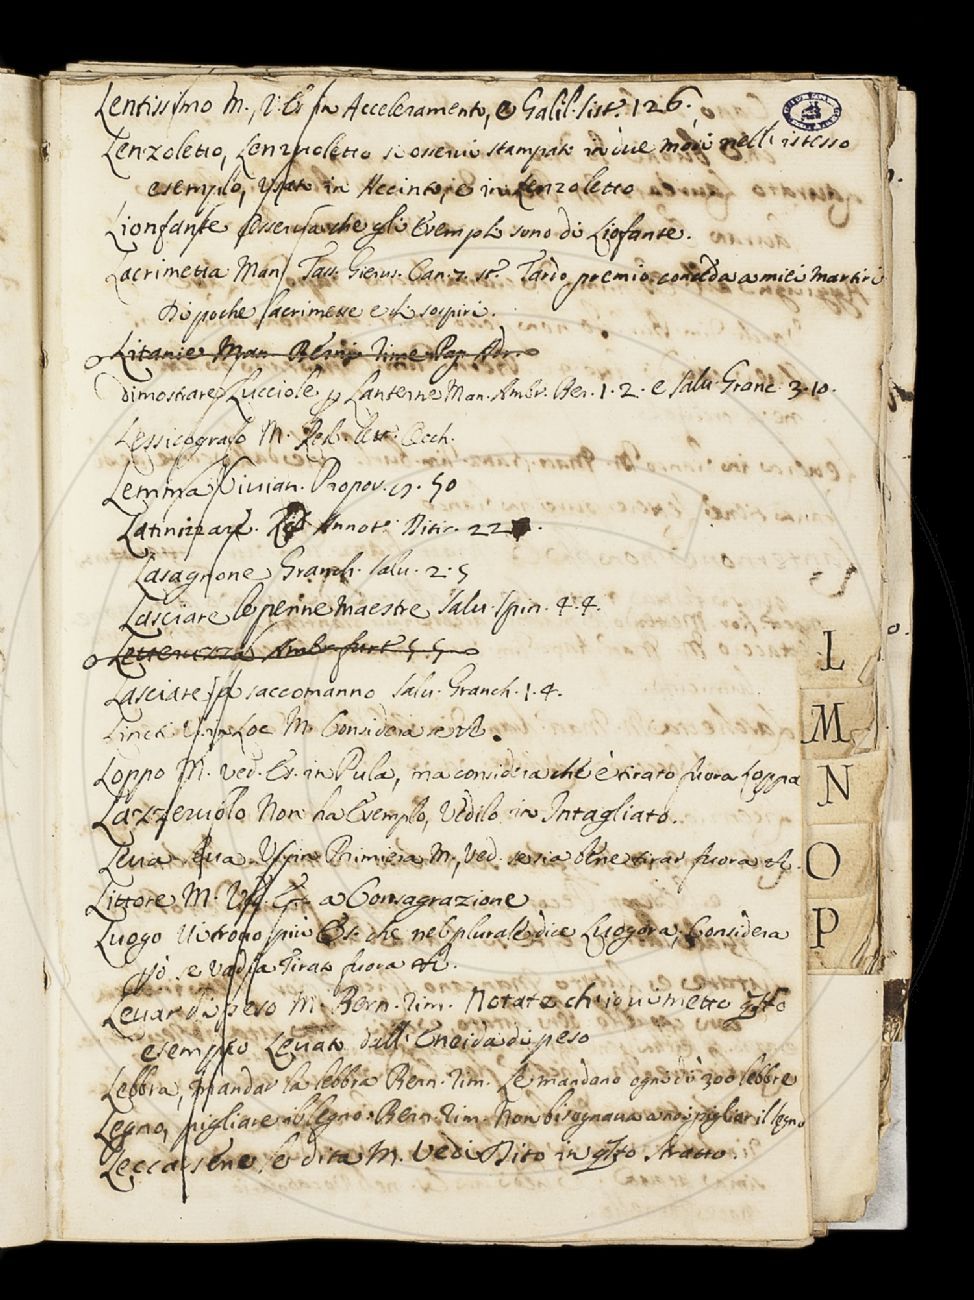 Lentissimo M., V. Es. in Acceleramento, e Galil. Sist. 126.
Lenzoletto, Lenzuoletto si osservi stampato in due modi nell'istesso
esemplo, Usato in Accinto, e in Lenzoletto
Lionfante Osserva che gli Esempli sono di Liofante.
Lacrimetta Man Tass. Gerus. Can. 7. st. Tardo premio conceda a miei martiri
Di poche lacrimette e di sospiri.
Litanie Man Rime
dimostrare Lucciole p Lanterne Man. Ambr. Ber. 1. 2. e Salv. Granc. 3. 10.
Lessicografo M. Red. Occh.
Lemma Vivian. Propov. 50
Latinizzare. Red Annot. Ditir. 22
Lasagnone Granch. Salv. 2. 5
Lasciare le penne maestre Salv. Spin. 4. 4.
Letteruzza Ambr. furt. 5. 5.
Lasciare p a saccomanno Salv. Granch. 1. 4.
V. in M. Considera se
Loppo M. Ved. Es. in Pula, ma considera che è tirato fuora Loppa
Lazzeruolo Non ha Esemplo, Vedilo in Intagliato.
Leva leva. V. in Primiera M, Ved. se sia bene tirar fuora
Littore M. Ved. Es. a Consagrazione
Luogo Vi trovo più Es. che nel plurale dice Luogora, Considera
se vadia Tirato fuora
Levar di peso M. Bern. rim. Notate ch'io vi metto qsto
esemplo Levato dall'Eneida di peso
Lebbra, mandar la lebbra Bern. rim. Le mandano ogni dì 300 lebbre
Legno, pigliare il legno Bern. rim. Non bisognava a noi pigliar il legno
Leccarsene le dita M. Vedi Dito in qsto stratto.
L
M
N
O
P